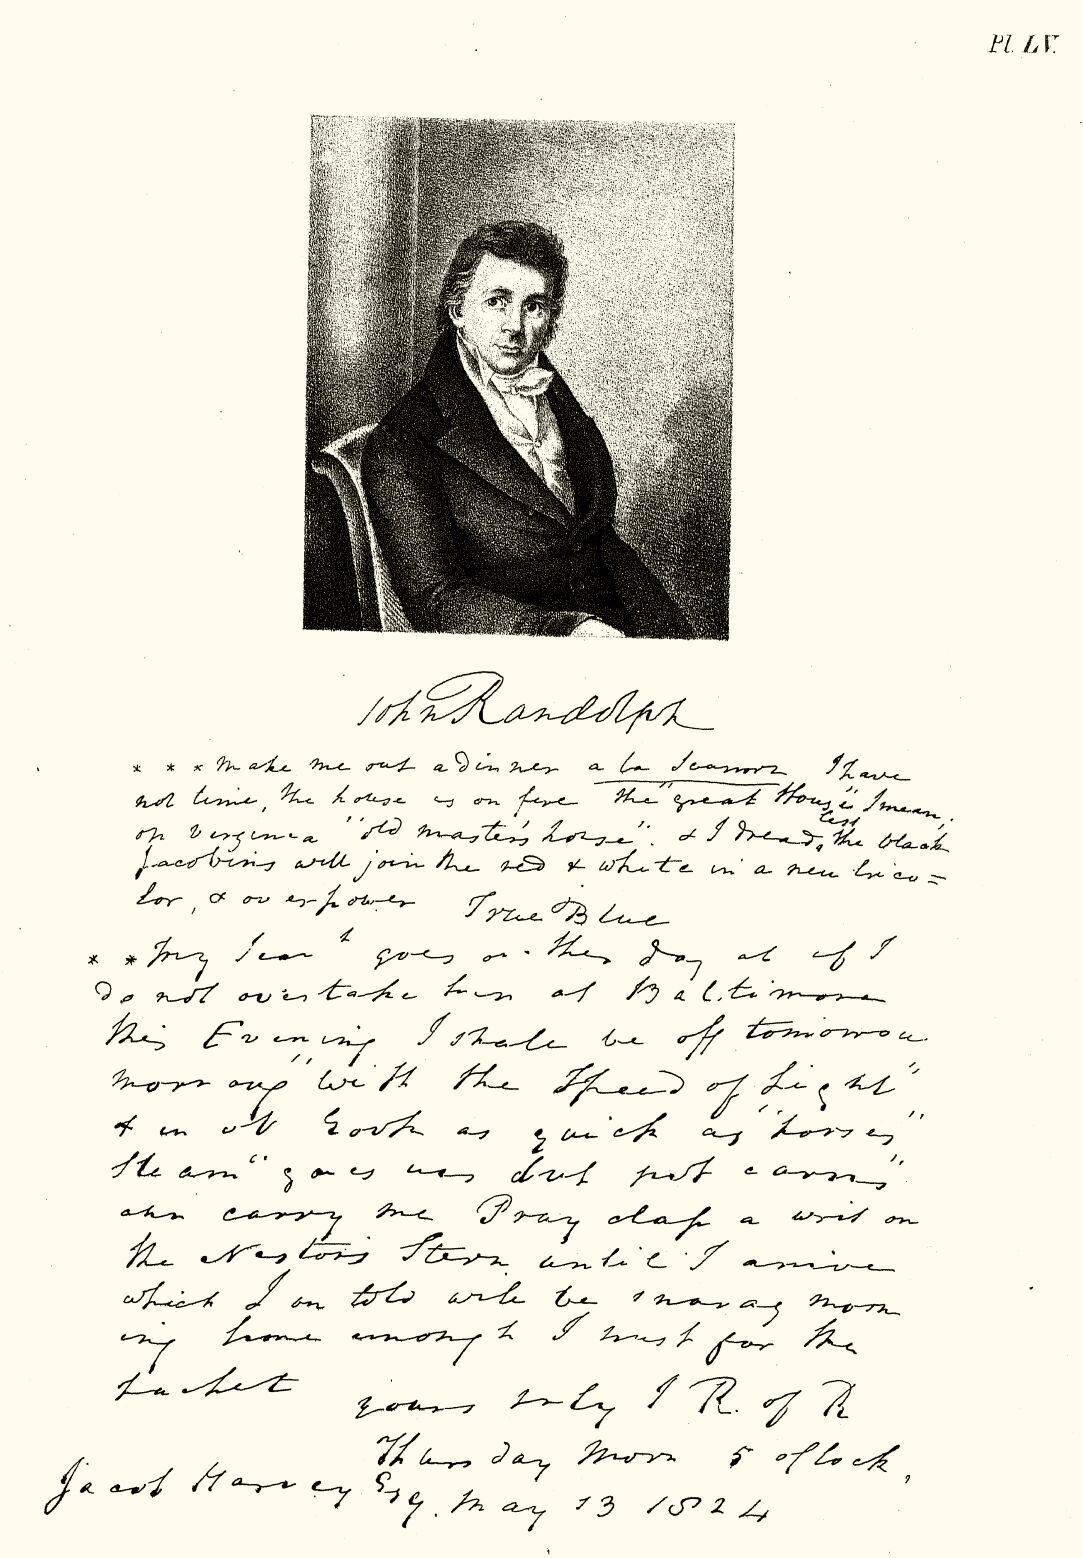 Pl. LV.
John Randolph
* * * Make me out a dinner a la I have
not time, the house is on fire the "great House" I mean,
on Virginia "old master's house". & I dread, lest the black
Jacobins will join the red & white in a new trico=
lor, & overpower True Blue
* * My goes on the day at if I
do not overtake him at Baltimore
this Evening I shall be off tomorrow
morning "with the Speed of Light"
& in as quick as "horses"
steam"
can carry me Pray clap a writ on
the Nestor's Stern until I arrive
which I am told will be morn
ing time enough I trust for the
Packet
yours truly J R. of R
Thursday Morn 5 oClock,
Jacob Harvey Esq. May 13 1824